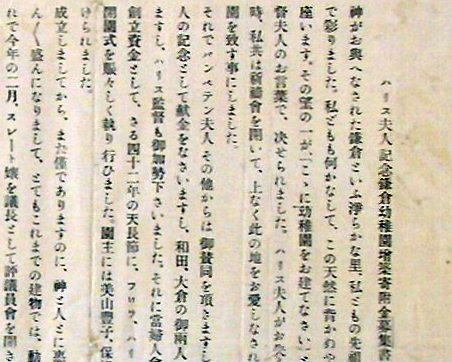 ハリス夫人記念鎌倉幼稚園増築寄附金募集書
神がお與へなされた鎌倉といふ淨らかな里、私どもの先祖
で彩りました。私どもも何かなして、この天然に背かぬや
座います。その望の一が、「こゝに幼稚園をお建てなさい」と
督夫人のお言葉で、決せられました。ハリス夫人がお學
時、私共は祈禱會を開いて、上なく此の地をお愛しなされ
園を致す事にしました。
それでバンペテン夫人その他からは御賛同を頂きますし
人の記念として献金をなさいますし、和田、大倉の御兩人
ますし、ハリス監督も御加勢下さいました。それに當婦人會
創立資金として、さる四十二年の天長節に、フロラ、ハリ
開園式を賑々しく執り行ひました。園主には美山豊子、保
けられました。
成立しましてから、まだ僅でありますのに、神と人とに惠
ん〳〵盛んになりまして、とてもこれまでの建物では、動
れで今年の二月、スレート孃を議長として評議員會を開き